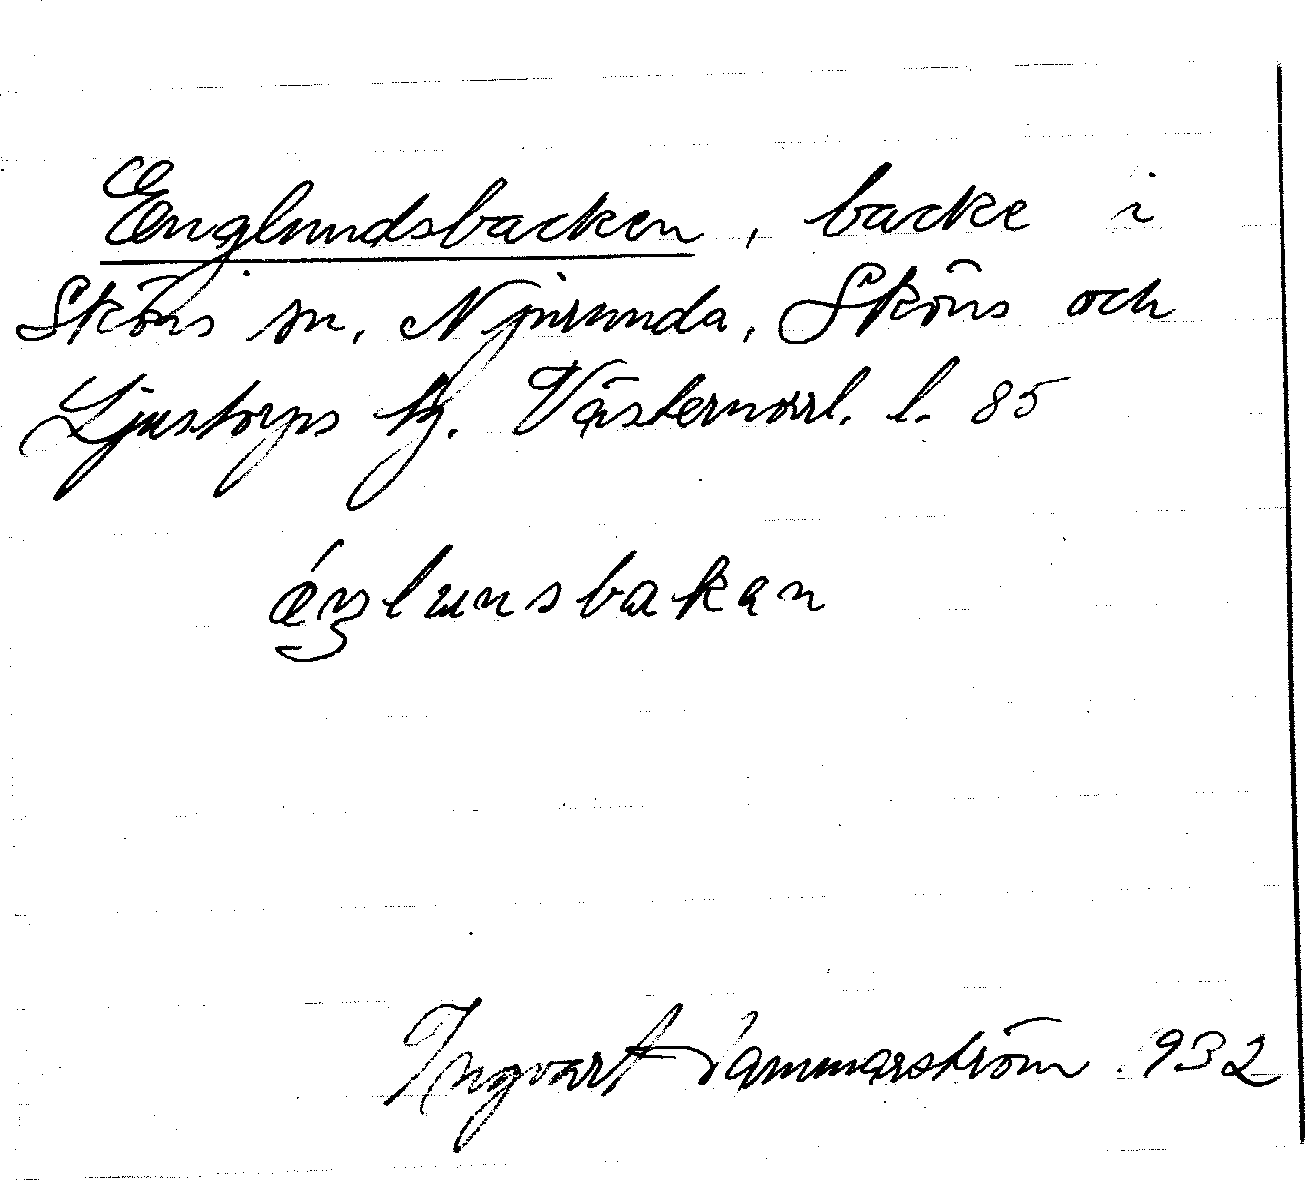 Englundsbacken, backe i
Sköns sn, Njurunda, Sköns och
Ljustorps tg. Västernorrl. l. 85
éŋlunsbakan
Ingvart Hammarström 1932